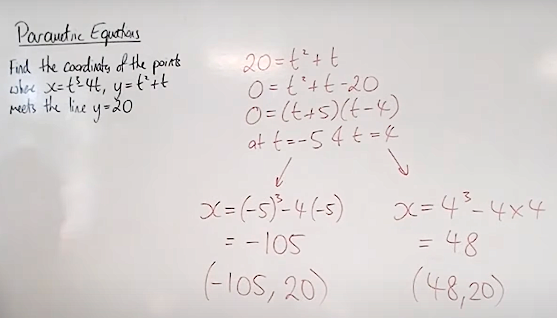 Parametric Equations
Find the coordinates of the points
where x=t³-4t, y=t²+t
meets the line y=20
20=t²+t
0=t²+t-20
0=(t+5)(t-4)
at t=-5 & t=4
x=(-5)³-4(-5)
=-105
(-105, 20)
x=4³-4×4
=48
(48,20)